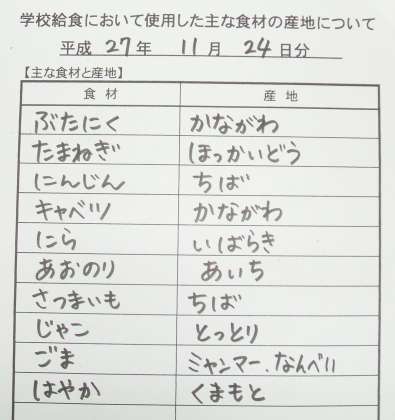 学校給食において使用した主な食材の産地について
平成 27 年 11 月 24 日分
【主な食材と産地】
食材 産地
ぶたにく かながわ
たまねぎ ほっかいどう
にんじん ちば
キャベツ かながわ
にら いばらき
あおのり あいち
さつまいも ちば
じゃこ とっとり
ごま ミャンマー、なんべい
はやか くまもと